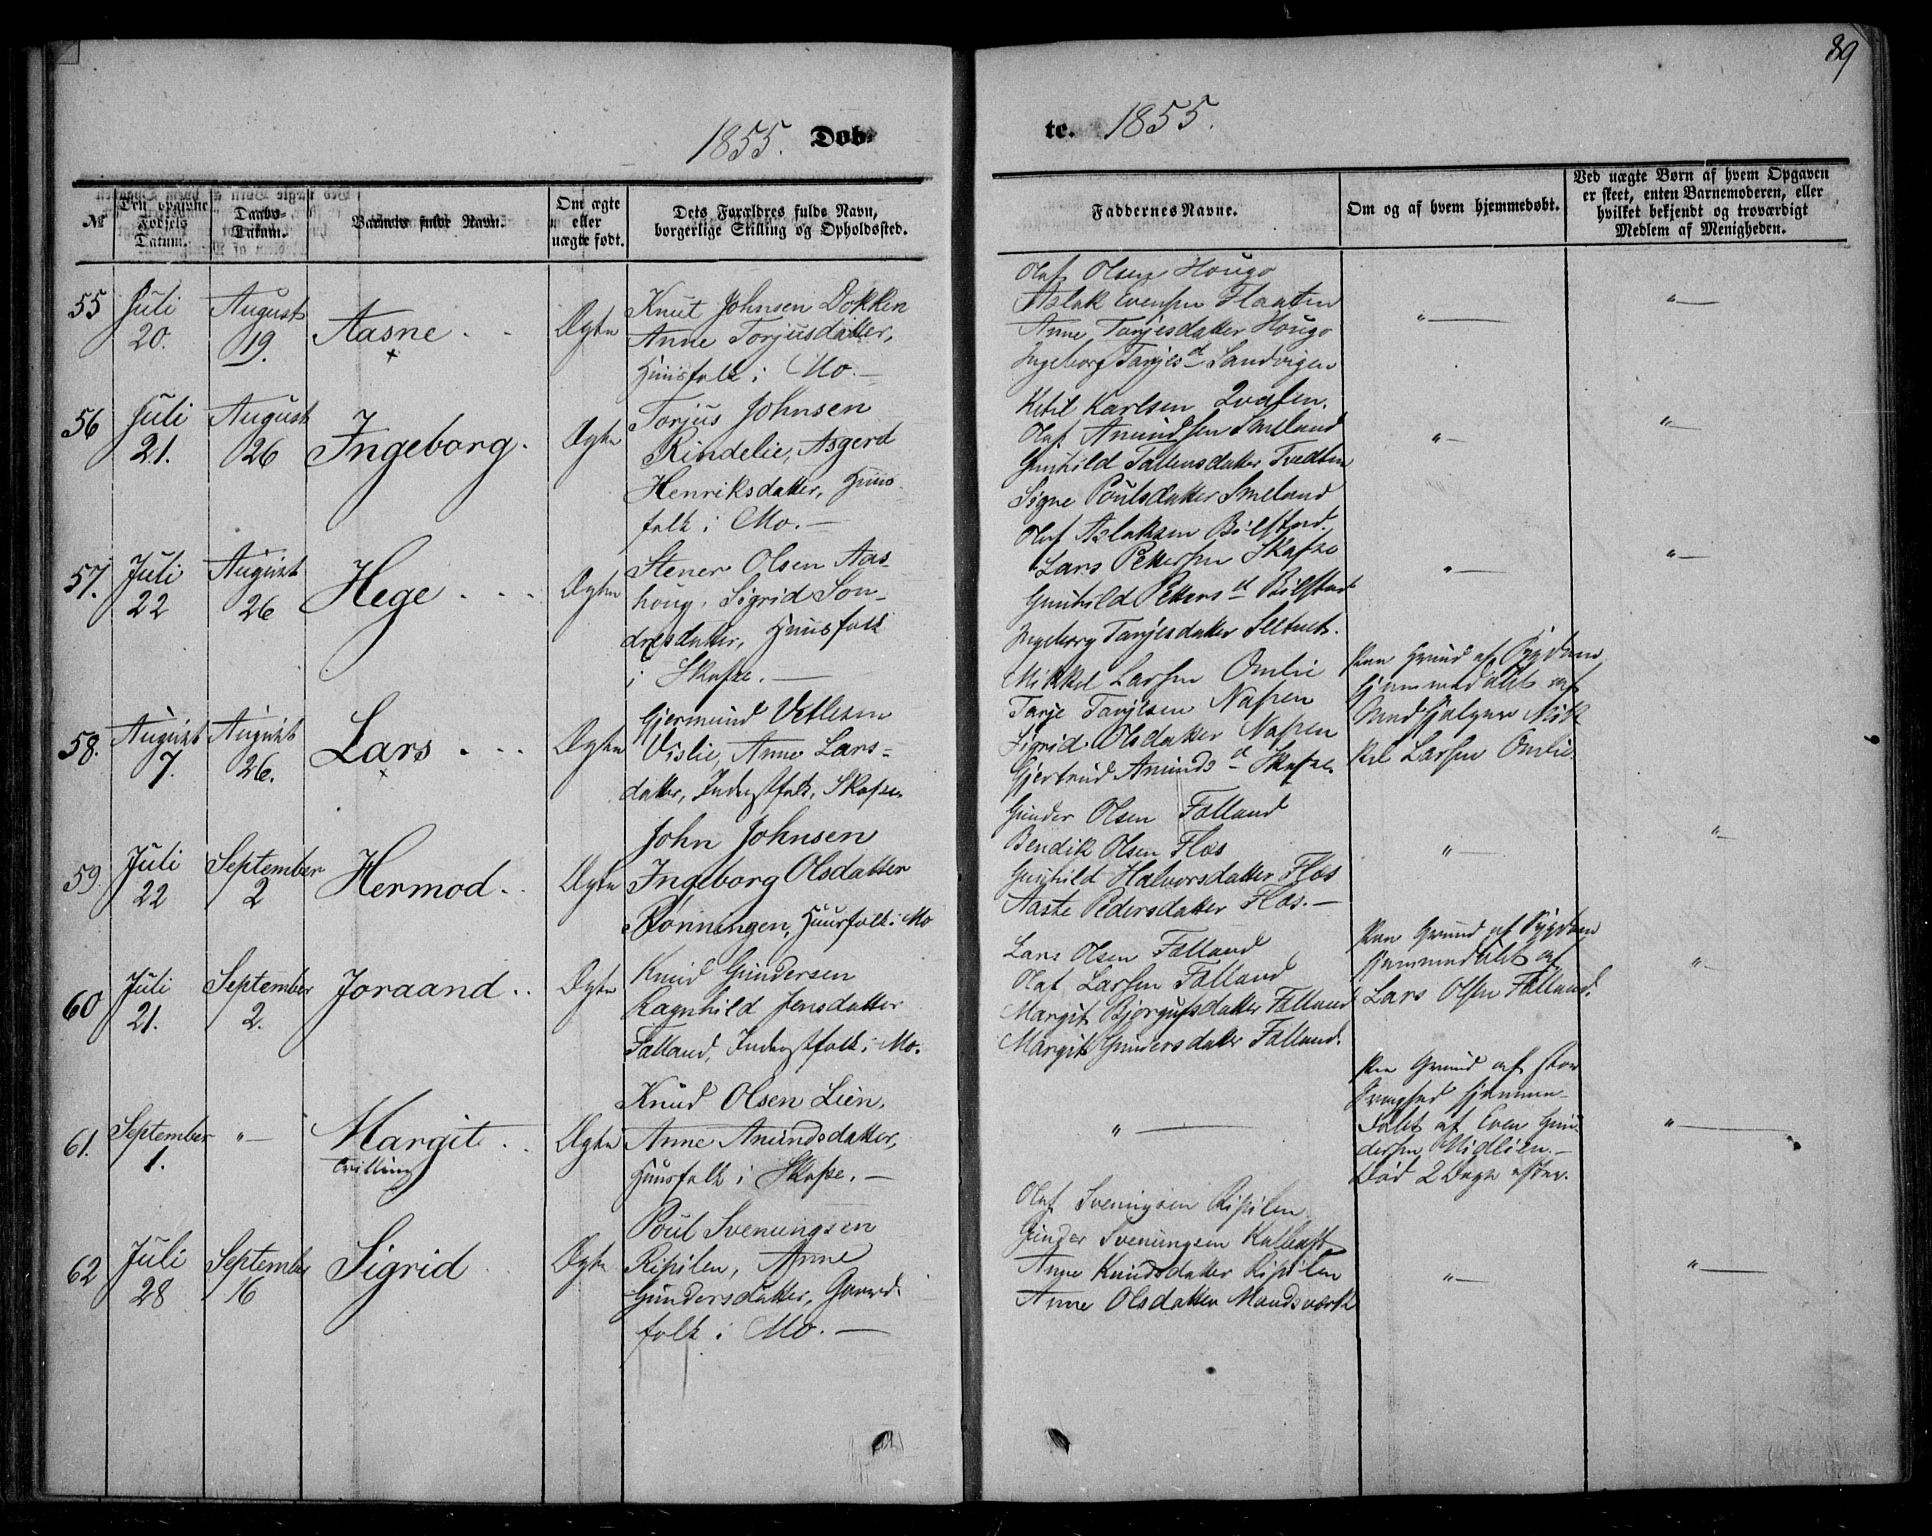 89
1855. Døb-
te. 1855.
№
Den opgivne Fødsels Datum.
Daabs-Datum.
Barnets fulde Navn.
Om ægte eller uægte født.
Dets Forældres fulde Navn, borgerlige Stilling og Opholdssted.
Faddernes Navne.
Om og af hvem hjemmedøbt.
Ved uægte Børn af hvem Opgaven er skeet, enten Barnemoderen, eller hvilket bekjendt og troværdigt Medlem af Menigheden.
55
Juli
20.
August
19.
Aasne
Ægte
Knut Johnsen Dokken
Anne Torjusdatter,
Huusfolk i Mo. —
Olaf Olsen Hougo
Aslak Evensen Flaaten
Anne Tarjesdatter Hougo
Ingeborg Tarjesd Sandvigen
" —
" —
56
Juli
21.
August
26
Ingeborg.
Ægte
Torjus Johnsen
Rindelie, Asgerd
Henriksdatter, Huus-
folk i Mo. —
Ketil Karlsen
Olaf Amundsen Smeland
Gunhild Tallensdatter Tvedten
Signe Poulsdatter Smeland
" —
" —
57.
Juli
22
August
26
Hege
Ægte
Stener Olsen Aas-
houg, Sigrid Son-
dresdatter, Huusfolk
i Skafse. —
Olaf Aslaksen Bilstad.
Lars Pettersen Skafse
Gunhild Petters d Bilstad
Ingeborg Tarjesdatter
" —
" —
58.
August
7.
August
26.
Lars
Ægte
Gjermund Vetlesen
Vislie, Anne Lars-
datter, Inderstfolk, Skafse
Mikkel Larsen Omlie
Tarje Tarjesen Nafsen
Sigrid Olsdatter Nafsen
Gjertrud Amunds d Skafse
Paa Grund af Sygdom
hjemmedøbt af
Medhjælper Mik-
kel Larsen Omlie.
59.
Juli
22
September
2
Hermod
Ægte
John Johnsen
Ingeborg Olsdatter
Rønningen, Huusfolk i Mo
Gunder Olsen Falland
Bendik Olsen Flos
Gunhild Halvorsdatter Flos
Aaste Pedersdatter Flos. —
" —
" —
60
Juli
21.
September
2.
Joraand
Ægte
Knud Gundersen
Ragnhild Jensdatter
Falland, Inderstfolk i Mo.
Lars Olsen Falland
Olaf Larsen Falland
Margit Bjørgufsdatter Falland
Margit Gundersdatter Falland.
Paa Grund af Sygdom
hjemmedøbt af
Lars Olsen Falland.
" —
61.
September
1.
" —
Margit
Trilling
Ægte
Knud Olsen Lien,
Anne Amundsdatter,
Huusfolk i Skafse. —
" —
Paa Grund af stor
Svaghed hjemme-
døbt af Even Gun-
dersen Midlien. —
Død 2 Dage efter.
" —
62
Juli
28
September
16
Sigrid
Ægte
Poul Svenungsen
Ripilen, Anne
Gundersdatter, Gaard-
folk i Mo. —
Olaf Svenungsen Ripilen
Gunder Svenungsen
Anne Knudsdatter Ripilen
Anne Olsdatter Mandsværk
" —
" —